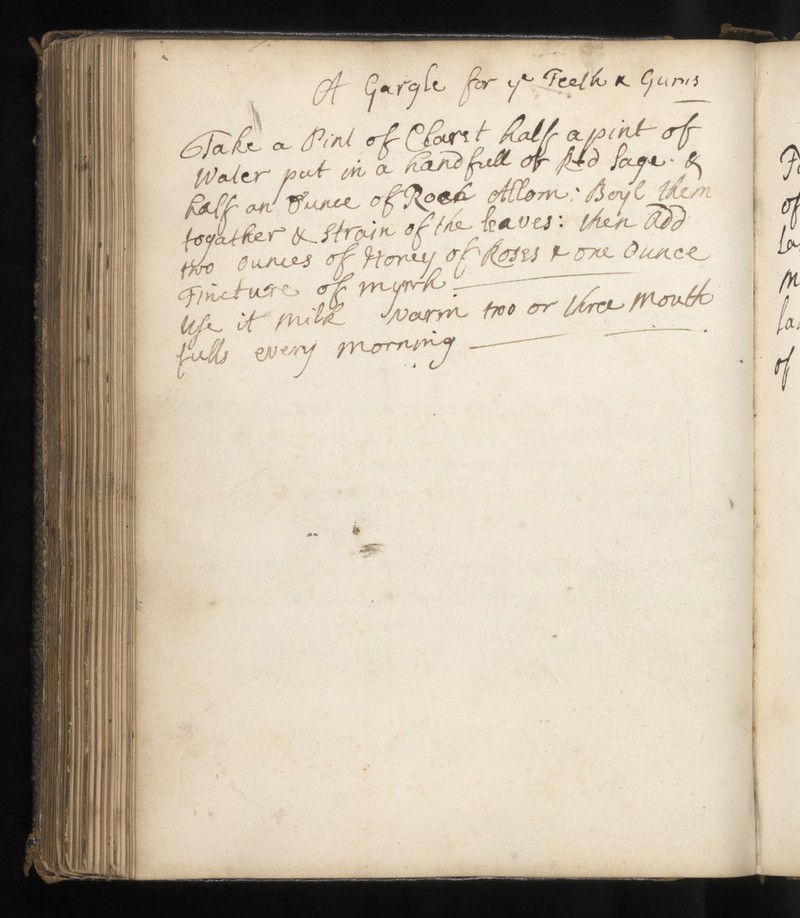 A Gargle for ye Teeth & Gums
Take a Pint of Claret half a pint of
Water put in a handfull of Red Sage &
half an Ounce of Roch Allom: Boyl them
togather & Strain of the leaves: then add
two Ounces of Honey of Roses & one Ounce
Tincture of myrrh
Use it milk warm two or three mouth
fulls every morning